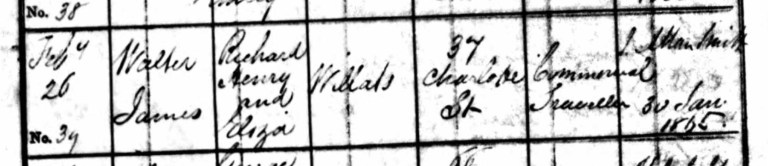 No. 38
Feby
26
No. 39
Walter
James
Richard
Henry
and
Eliza
Willats
37
Charlotte
St
Commercial
Traveller
Smith
30 Jan.
1865